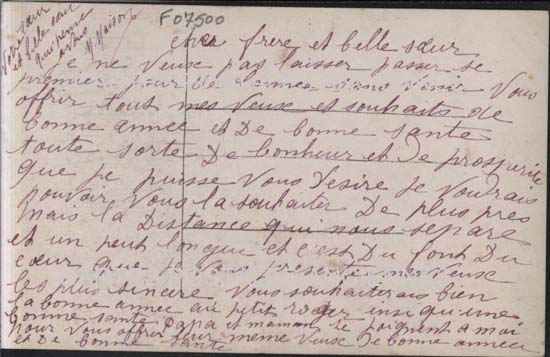 F07500
Votre sœur
et belle sœur
qui pense
a vous
M Maison
cher frere et belle sœur
Je ne veux pas laisser passer se
premier jour de l'annee sans venir vous
offrir tous mes veux et souhaits de
bonne annee et De bonne sante
toute sorte De bonheur et De prosperite
que je puisse vous Desire Je voudrais
pouvoir vous la souhaiter De plus pres
mais la Distance qui nous separe
et un peut longue et c'est Du font Du
cœur que je vous presente mes veux
les plus sincere vous souhaiterais bien
la bonne annee au petit roger insi qu'une
bonne sante Papa et maman se joignent a moi
pour vous offrir leur meme veux De bonne annee
et De bonne sante